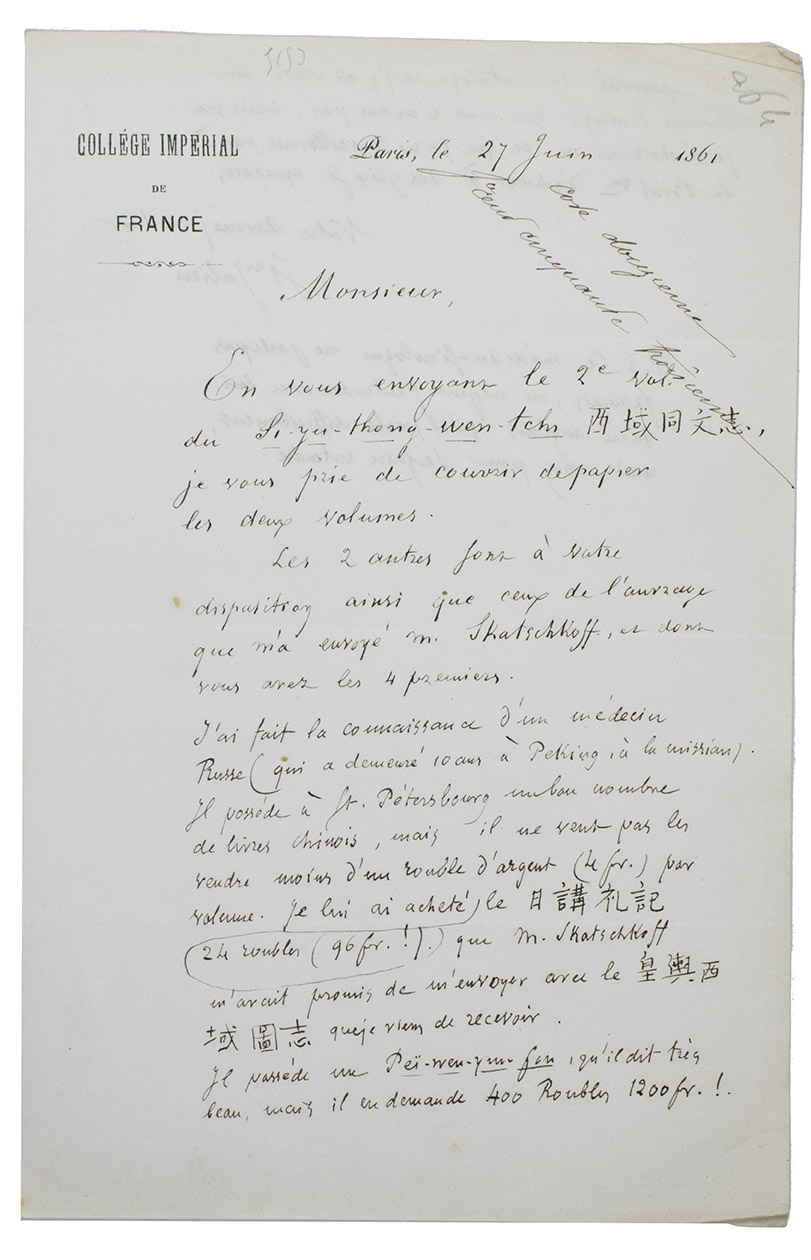 COLLÉGE IMPERIAL
DE
FRANCE
Paris, le 27 Juin 1861
cote douzieme
cent cinquante troisieme
Monsieur,
En vous envoyant le 2e vol.
du Si-yu-thong-wen-tchi 西域同文志,
je vous prie de couvrir de papier
les deux volumes.
Les 2 autres sont à votre
disposition ainsi que ceux de l'ouvrage
que m'a envoyé M. Skatschkoff, et dont
vous avez les 4 premiers.
J'ai fait la connaissance d'un médecin
Russe (qui a demeuré 10 ans à Peking, à la mission).
Il posséde à St. Pétersbourg un bon nombre
de livres chinois, mais il ne veut pas les
vendre moins d'un rouble d'argent (4 fr.) par
volume. Je lui ai acheté) le 日講礼記
24 roubles (96 fr.!).) que M. Skatschkoff
m'avait promis de m'envoyer avec le 皇輿西
域圖志 que je viens de recevoir.
Il posséde un Peï-wen-yun-fou, qu'il dit très
beau, mais il en demande 400 Roubles 1200 fr.!.